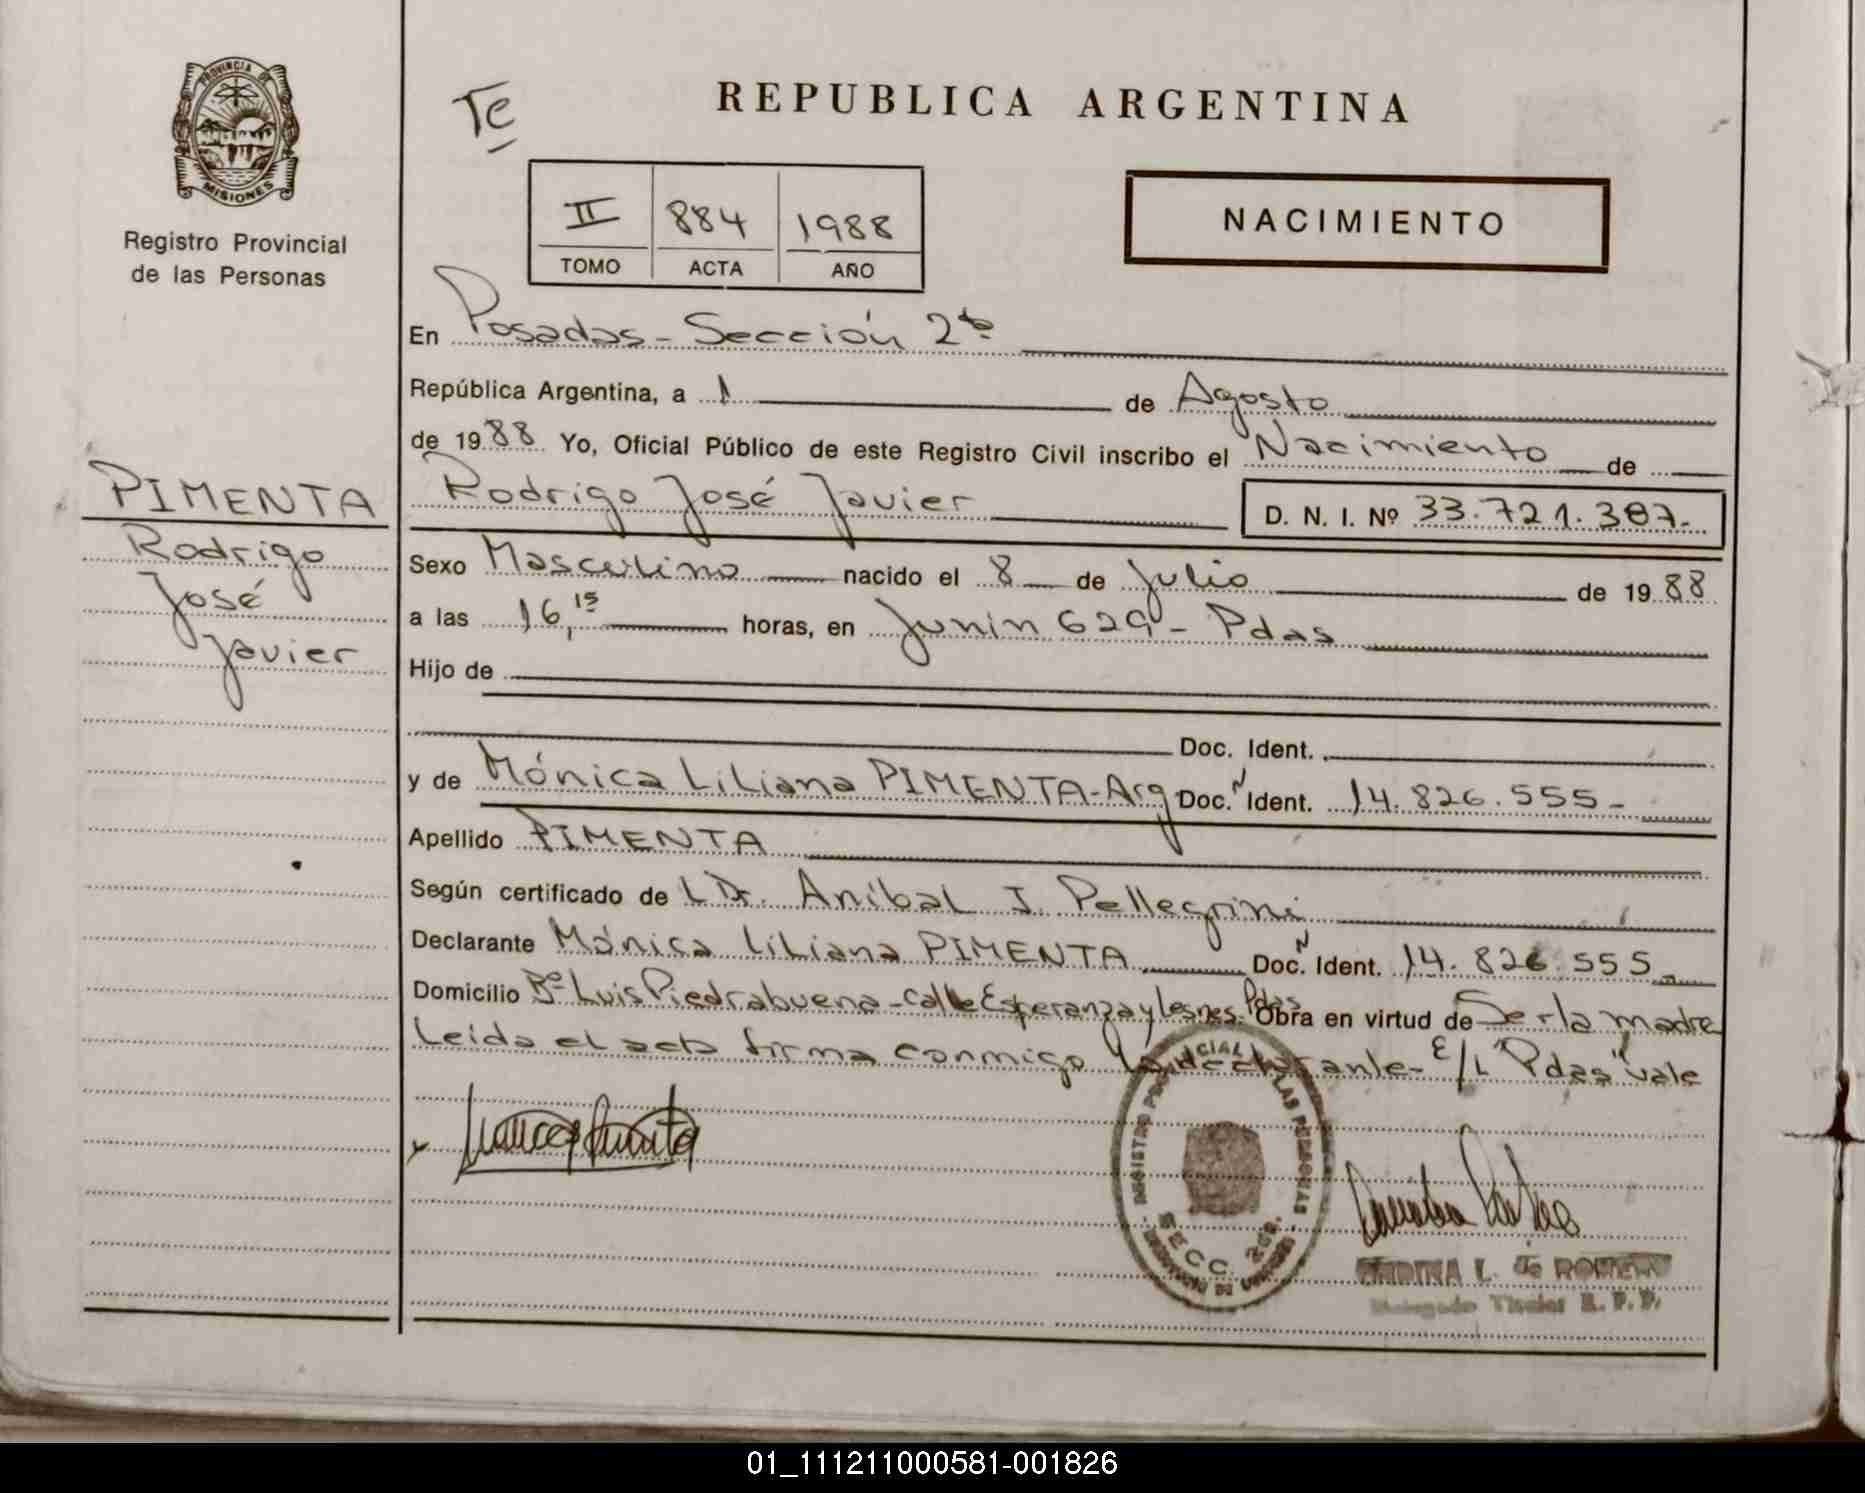 PROVINCIA DE
MISIONES
Registro Provincial
de las Personas
Te
REPUBLICA ARGENTINA
II 884 1988
TOMO ACTA AÑO
NACIMIENTO
En Posadas - Sección 2ª
República Argentina, a 1 de Agosto
de 1988 Yo, Oficial Público de este Registro Civil inscribo el Nacimiento de
PIMENTA
Rodrigo
José
Javier
Rodrigo José Javier D. N. I. Nº 33.721.387.-
Sexo Masculino nacido el 8 de Julio de 1988
a las 16,15 horas, en Junin 629 - Pdas
Hijo de
Doc. Ident.
y de Mónica Liliana PIMENTA-Arg Doc. Ident. 14.826.555-
Apellido PIMENTA
Según certificado de L Dr. Aníbal J. Pellegrini
Declarante Mónica Liliana PIMENTA Doc. Ident. 14.826.555
Domicilio Bº Luis Piedrabuena - calle Esperanza y Pdas Obra en virtud de Ser la madre
Leída el acta firma conmigo la declarante - E/L "Pdas" vale
REGISTRO PROVINCIAL DE LAS PERSONAS
SECC. 2da.
L. de ROMERO
Delegado Titular R. P. P.
01_111211000581-001826